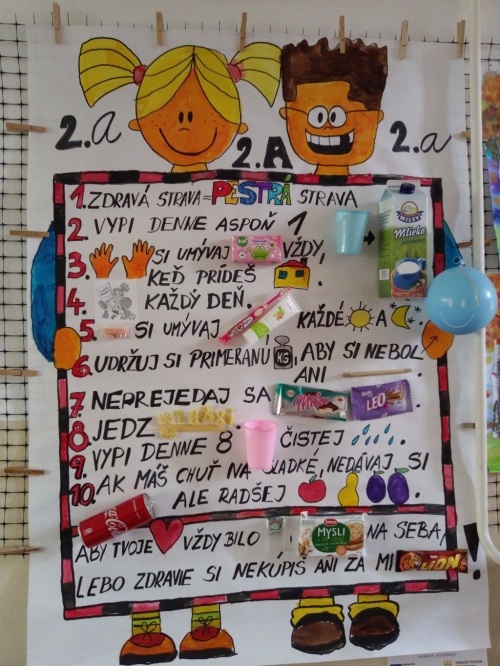 2.a
2.A
2.a
1. ZDRAVÁ STRAVA = PESTRÁ STRAVA
2. VYPI DENNE ASPOŇ 1
MILSY
Mlieko
3. SI UMÝVAJ VŽDY,
KEĎ PRÍDEŠ
4. KAŽDÝ DEŇ.
5. SI UMÝVAJ KAŽDÉ A .
6. UDRŽUJ SI PRIMERANÚ KG, ABY SI NEBOL
ANI .
7. NEPREJEDAJ SA Milka LEO
8. JEDZ .
9. VYPI DENNE 8 ČISTEJ .
10. AK MÁŠ CHUŤ NA SLADKÉ, NEDÁVAJ SI
Coca-Cola
ALE RADŠEJ .
ABY TVOJE VŽDY BILO MYSLI NA SEBA,
LEBO ZDRAVIE SI NEKÚPIŠ ANI ZA MI LION !